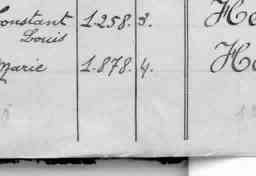 Constant 1.258. 3. He
Louis
Marie 1.878. 4. He